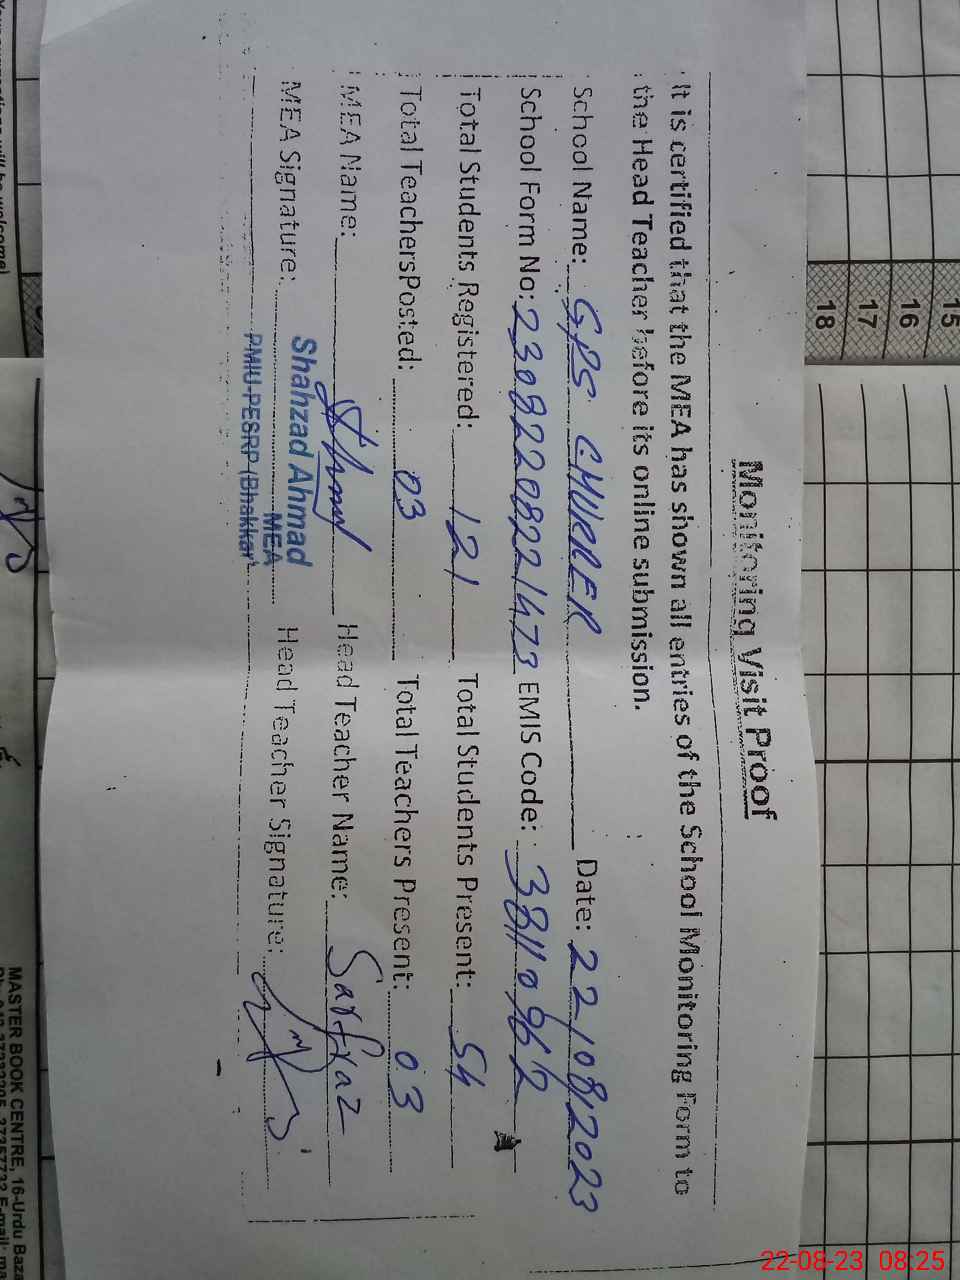 Monitoring Visit Proof
It is certified that the MEA has shown all entries of the School Monitoring Form to
the Head Teacher before its online submission.
School Name: GPS CHURRER Date: 22/08/2023
School Form No: 23082208221473 EMIS Code: 38110962
Total Students Registered: 121 Total Students Present: 54
Total TeachersPosted: 03 Total Teachers Present: 03
MEA Name: Head Teacher Name: Sarfraz
MEA Signature: Head Teacher Signature:
Shahzad Ahmad
MEA
PMIU-PESRP (Bhakkar)
15
16
17
18
MASTER BOOK CENTRE, 16-Urdu Baza
will be welcome)
22-08-23 08:25